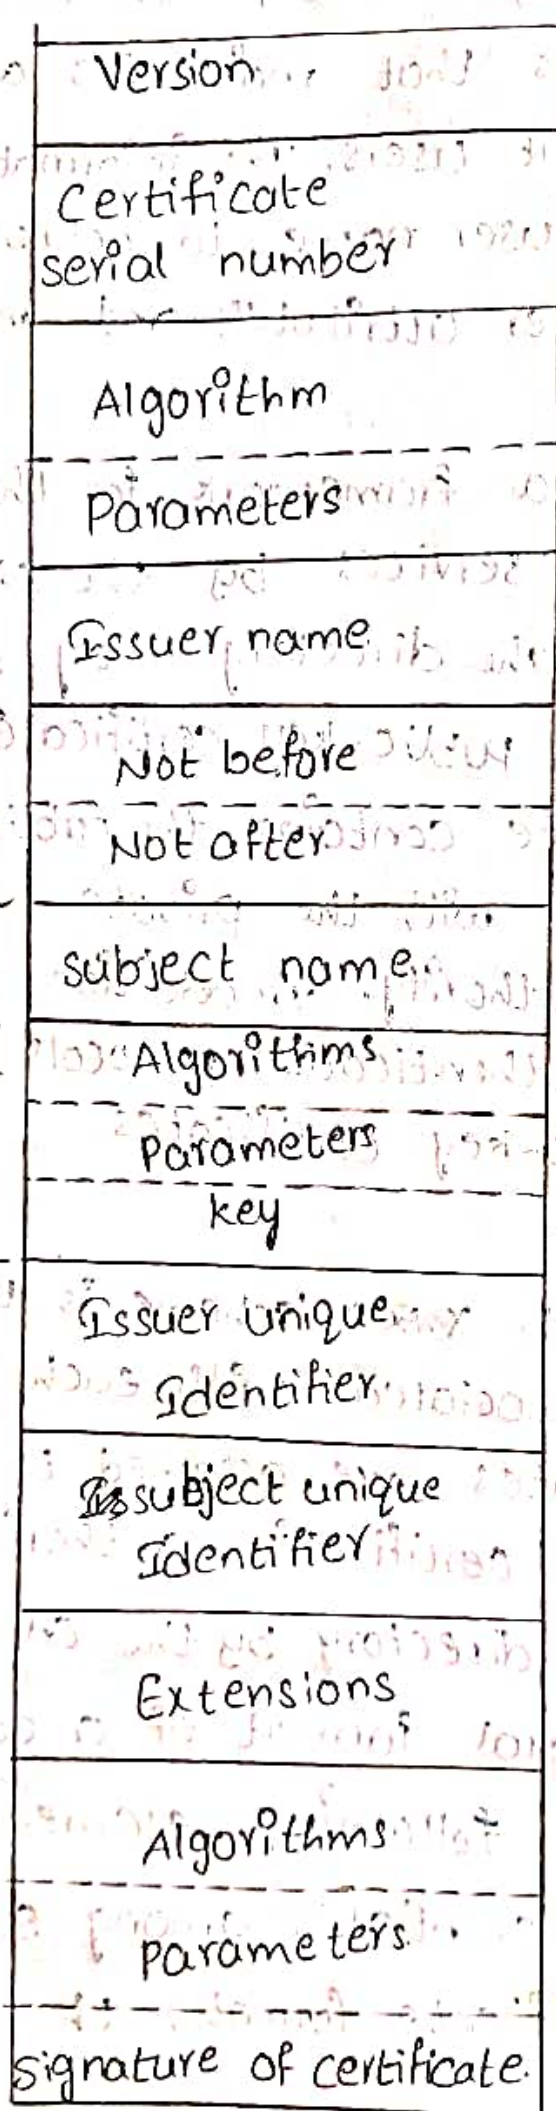 Version
Certificate
serial number
Algorithm
Parameters
Issuer name
Not before
Not after
subject name
Algorithms
Parameters
key
Issuer unique
Identifier
subject unique
Identifier
Extensions
Algorithms
parameters
signature of certificate.